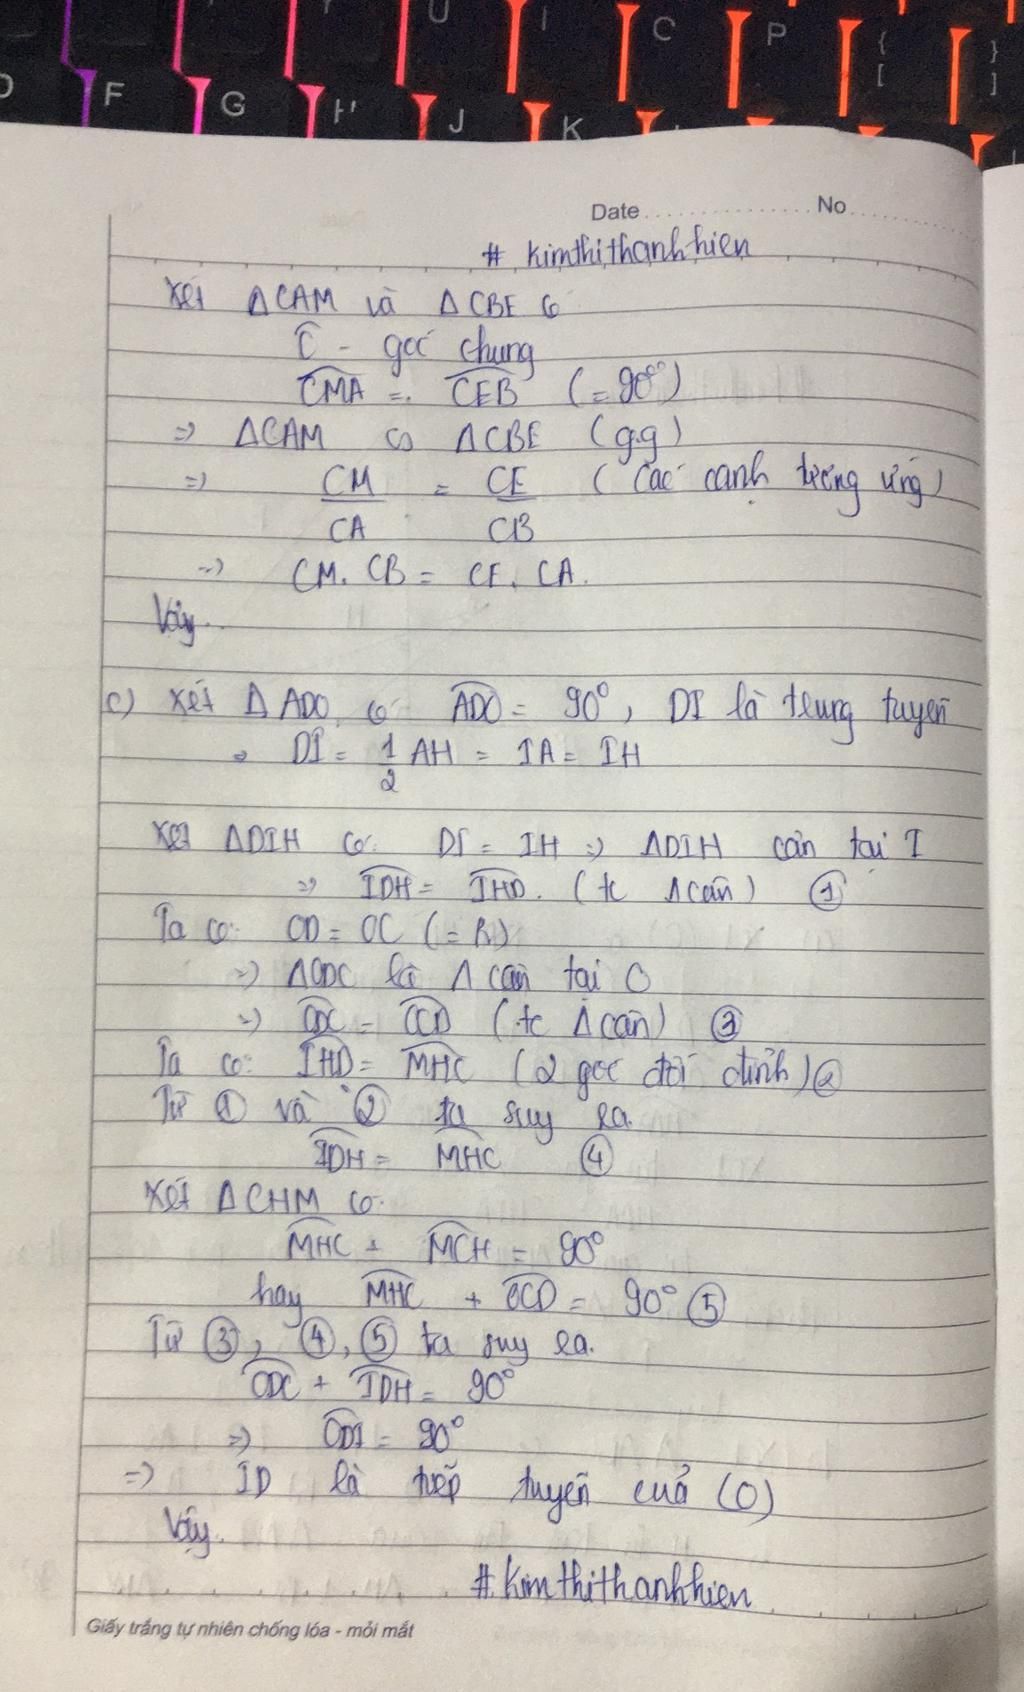 U I C P { [ } ]
F G H J K
Date No
# kimthithanhhien
Xét ΔCAM và ΔCBE có
Ĉ - góc chung
CMA = CEB (= 90°)
=> ΔCAM ∽ ΔCBE (g.g)
=> CM = CE (các cạnh tương ứng)
CA CB
=> CM. CB = CE. CA.
Vậy..
c) Xét Δ ADO có ADO = 90°, DI là trung tuyến
=> DI = 1/2 AH = IA = IH
Xét ΔDIH có DI = IH => ΔDIH cân tại I
=> IDH = IHD. (tc Δ cân) ①
Ta có: OD = OC (= R)
=> ΔODC là Δ cân tại O
=> ODC = OCD (tc Δ cân) ③
Ta có: IHD = MHC (2 góc đối đỉnh) ②
Từ ① và ② ta suy ra.
IDH = MHC ④
Xét ΔCHM có:
MHC + MCH = 90°
hay MHC + OCD = 90° ⑤
Từ ③, ④, ⑤ ta suy ra.
ODC + IDH = 90°
=> ODI = 90°
=> ID là tiếp tuyến cuả (O)
Vậy.
#kimthithanhhien
Giấy trắng tự nhiên chống lóa - mỏi mắt